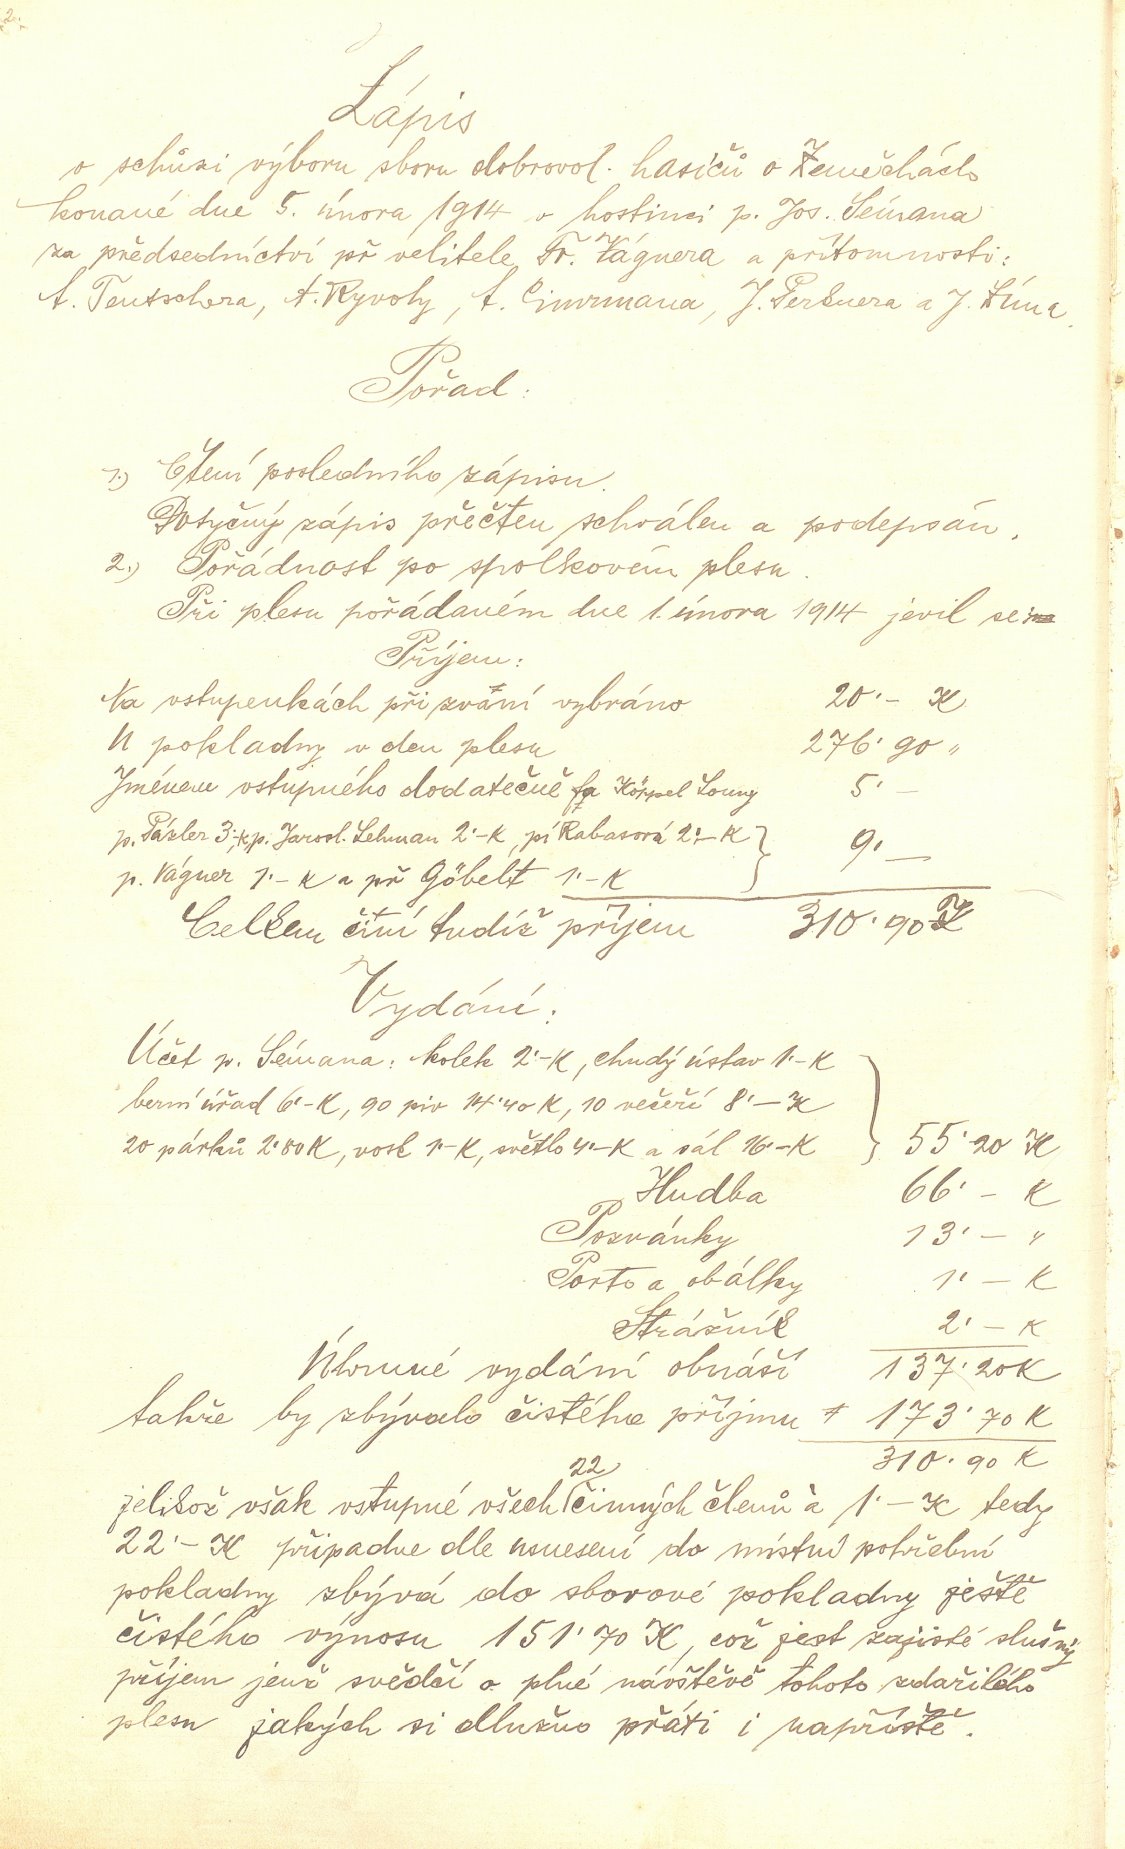 2.
Zápis
o schůzi výboru sboru dobrovol. hasičů v Zeměchách
konané dne 5. února 1914 v hostinci p. Jos. Seimana
za předsednictví př velitele Fr. Vágnera a přítomnosti:
A. Teutschera, A. Kyvoly, A. Cimrmana, J. Perknera a J. Zíma.
Pořad:
1.) Čtení posledního zápisu.
Dotyčný zápis přečten schválen a podepsán.
2.) Pořádnost po spolkovém plesu.
Při plesu pořádaném dne 1. února 1914 jevil se:
Příjem:
Na vstupenkách při zvaní vybráno 20·– K
U pokladny v den plesu 276·90 „
Jménem vstupného dodatečně fa Köppel Louny 5·–
p. Pázler 3·–K, p. Jarosl. Lehman 2·–K, pí Rabasová 2·–K
p. Vágner 1·–K a př Göbelt 1·–K } 9·–
Celkem činí tudíž příjem 310·90 K
Vydání:
Účet p. Seimana: kolek 2·–K, chudý ústav 1·–K
berní úřad 6·–K, 90 piv 14·40 K, 10 večeří 8·–K
20 párků 2·80 K, vosk 1·–K, světlo 4·–K a sál 16·–K } 55·20 K
Hudba 66·– K
Pozvánky 13·– „
Porto a obálky 1·– K
Strážník 2·– K
Úhrnné vydání obnáší 137·20 K
takže by zbývalo čistého příjmu + 173·70 K
310·90 K
jelikož však vstupné všech 22 činných členů à 1·–K tedy
22·–K připadne dle usnesení do místní potřební
pokladny zbývá do sborové pokladny ještě
čistého výnosu 151·70 K, což jest zajisté slušný
příjem jenž svědčí o plné návštěvě tohoto zdařilého
plesu jakých si dlužno přáti i napříště.